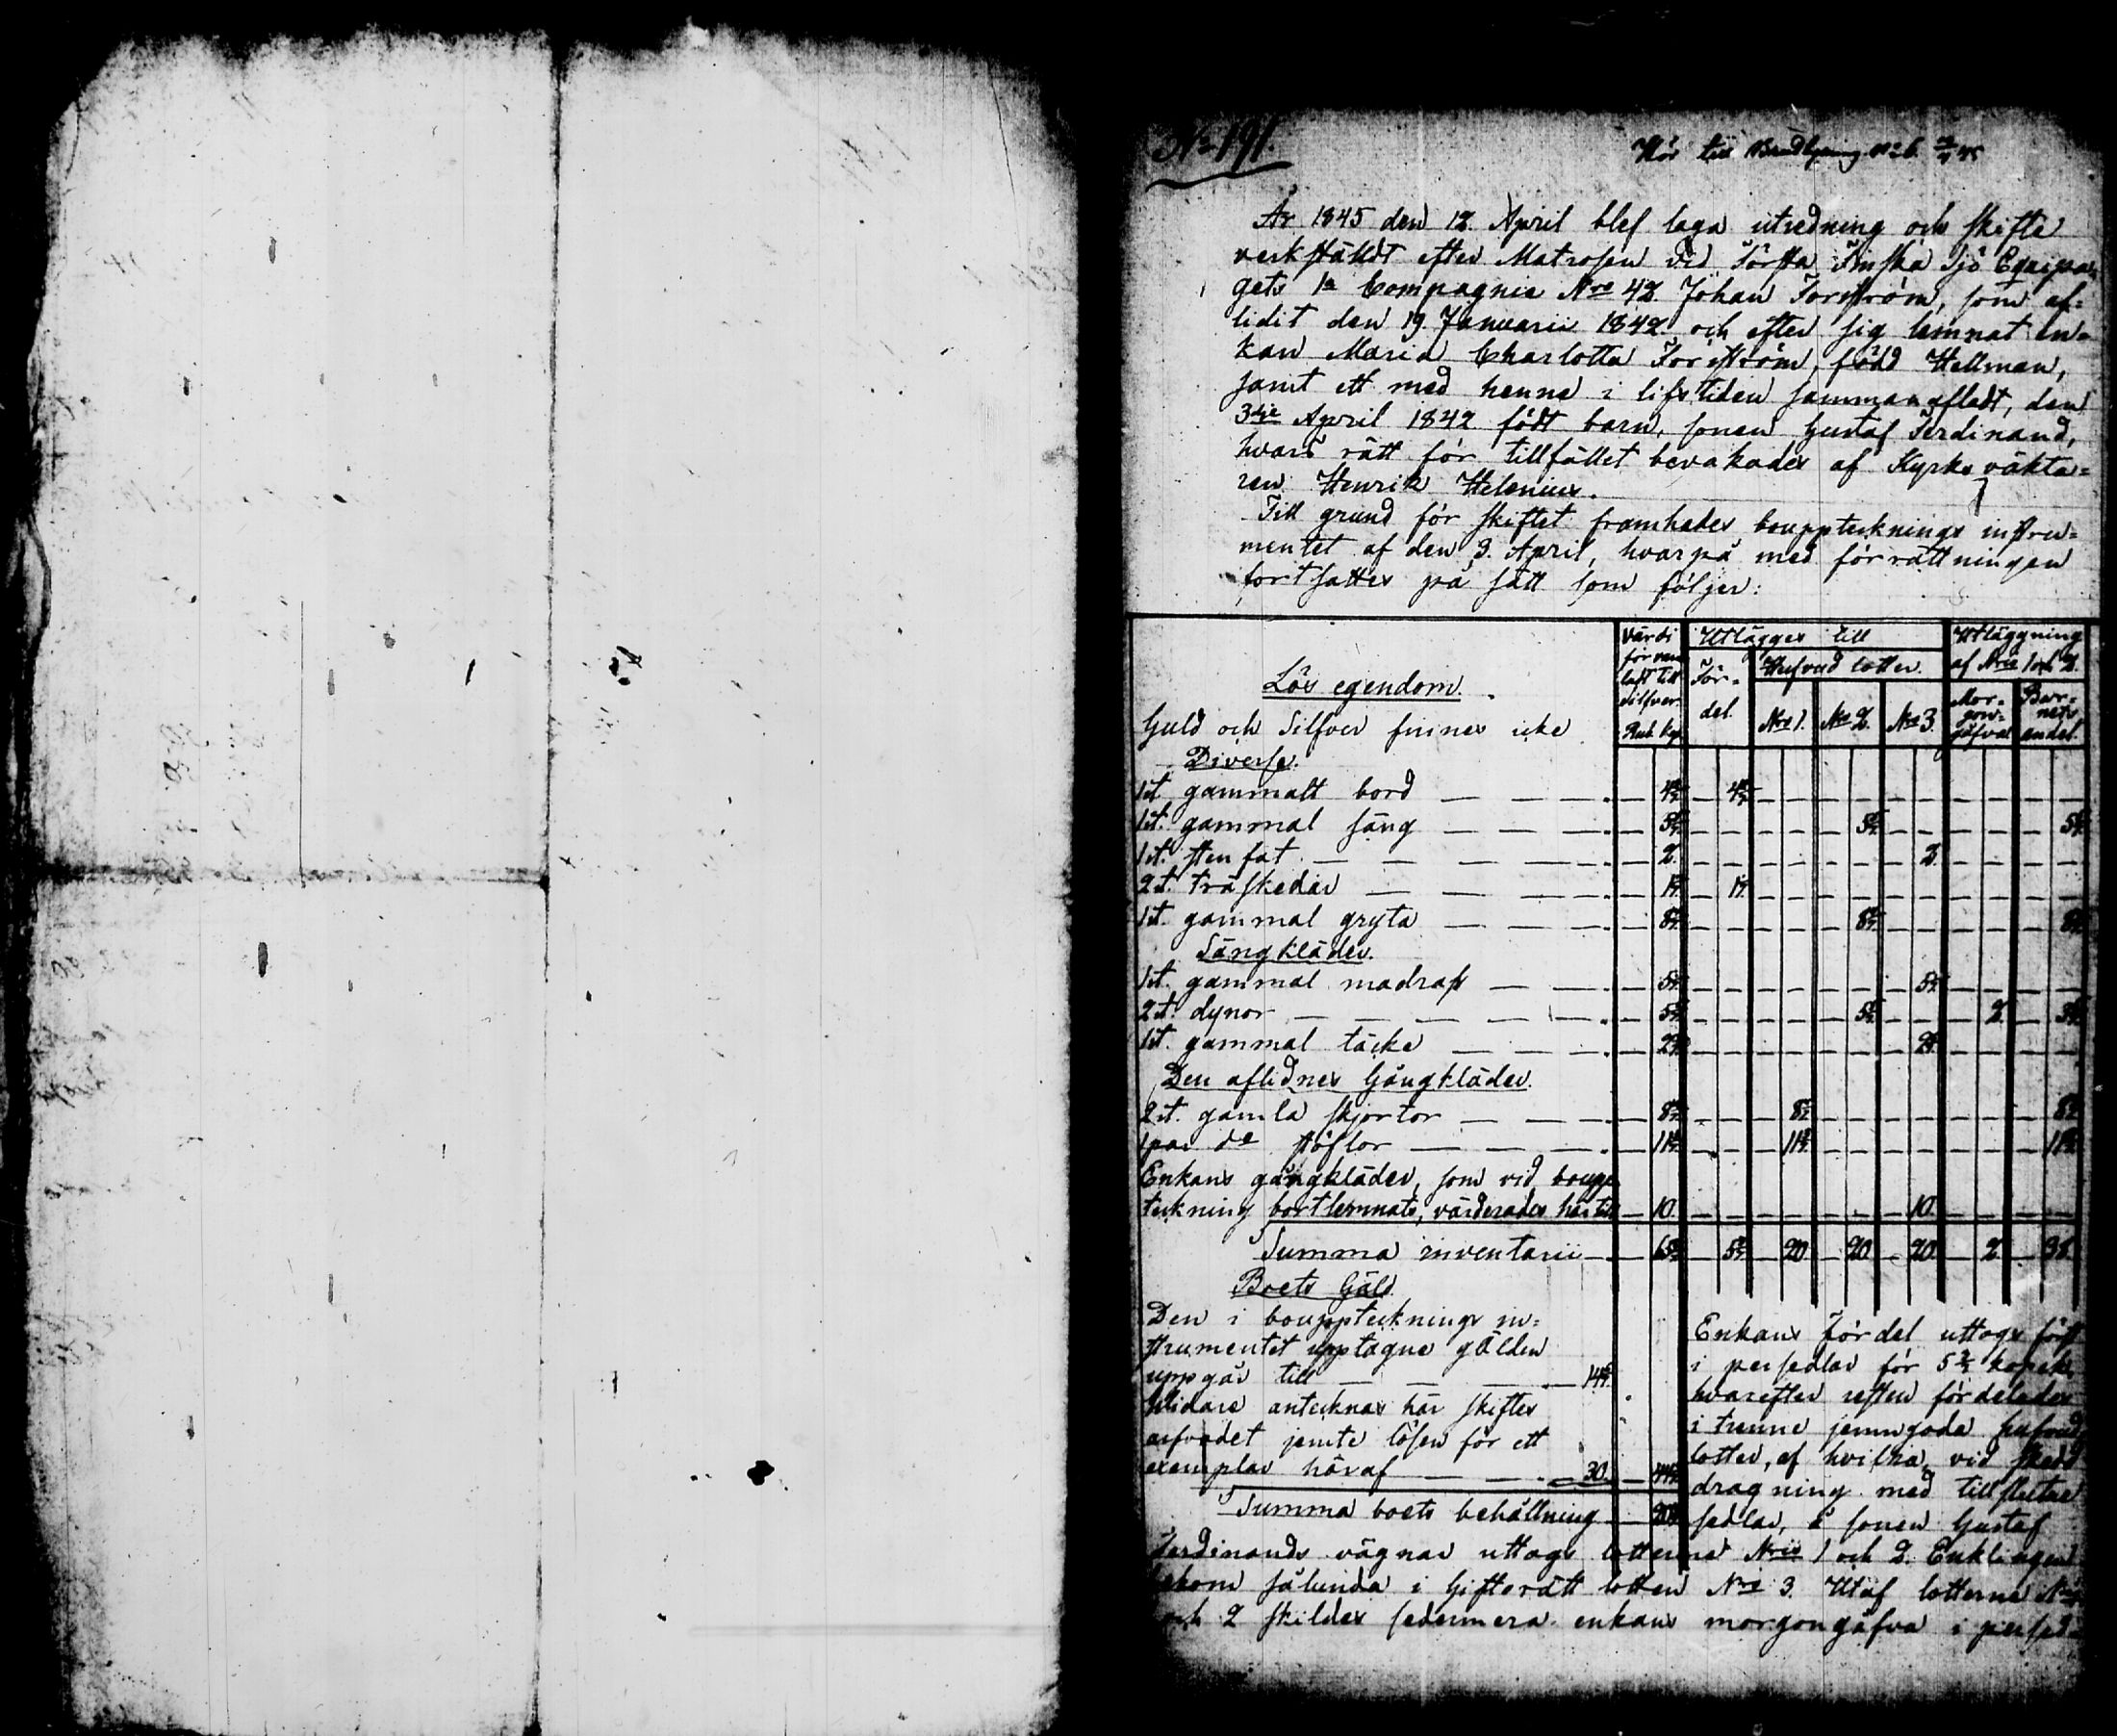 No 191.
Hör till
År 1845 den 12. April blef laga utredning och skifte
verkstäldt efter Matrosen vid Första Finska Sjö Equipa-
gets 1a Compagnie Nro 42. Johan Forsström, som af-
lidit den 19. Januarii 1842 och efter sig lemnat en-
kan Maria Charlotta Forsström, född Hellman,
samt ett med henne i lifstiden sammanafladt, den
3die April 1842 födt barn, sonen Gustaf Ferdinand,
hvars rätt för tillfället bevakades af Kyrkoväkta-
ren Henrik Helenius.
Till grund för skiftet framhades bouppteknings instru-
mentet af den 9. April, hvarpå med förrättningen
fortsattes på sätt som följer:
Lös egendom.
Värdi
laft till
Silfver.
Rub. Kop.
Utlägges till
För-
del.
Hufvud lotter.
Nro 1. Nro 2. Nro 3.
Utläggning
af Nris 1 och 2.
Mor-
gon-
gåfva
Bar-
nets
andel.
Guld och Silfver finnes icke
Diverse.
1 st. gammalt bord — — — 4 2/7 — 4 2/7
1 st. gammal säng — — — 5 — 5 — 5
1 st. sten fat — — — 2. — 2.
2 st. träskedar — — — 1 — 1
1 st. gammal gryta — — — 8 — 8 — 8
Sängkläder.
1 st. gammal madrass — — 5 — 5
2 st. dynor — — — 5 — 5 — 2. — 3
1 st. gammal täcke — — — 2 — 2
Den aflidnes Gångkläder.
2 st. gamla skjortor — — 8 — 8 — 8
1 par do stöflor — — — 11 — 11 — 11
Enkans gångkläder, som vid boupp-
tekning bortlemnats, värderades här till — 10. — 10.
Summa inventarii — 65 — 5 — 20. — 20. — 20. — 2. — 38.
Boets Gäld.
Den i bouppteknings in-
strumentet upptagne gälden
uppgår till — — — 14
Vidare antecknas här skiftes
arfvodet jemte lösen för ett
exemplar häraf — — — 30. — 44
Summa boets behållning — 20
Enkans fördel uttogs först
i persedlar för 5 2/7 kopek,
hvarefter resten fördelades
i trenne jemngoda hufvud
lotter, af hvilka, vid skedd
dragning med tillslutne
sedlar, å sonen Gustaf
Ferdinands vägnar uttogs lotterne Nris 1 och 2. Enklingen
bekom sålunda i Giftorätt lotten Nro 3. Utaf lotterne Nris 1
och 2 skildes sedermera enkans morgongåfva i persed-